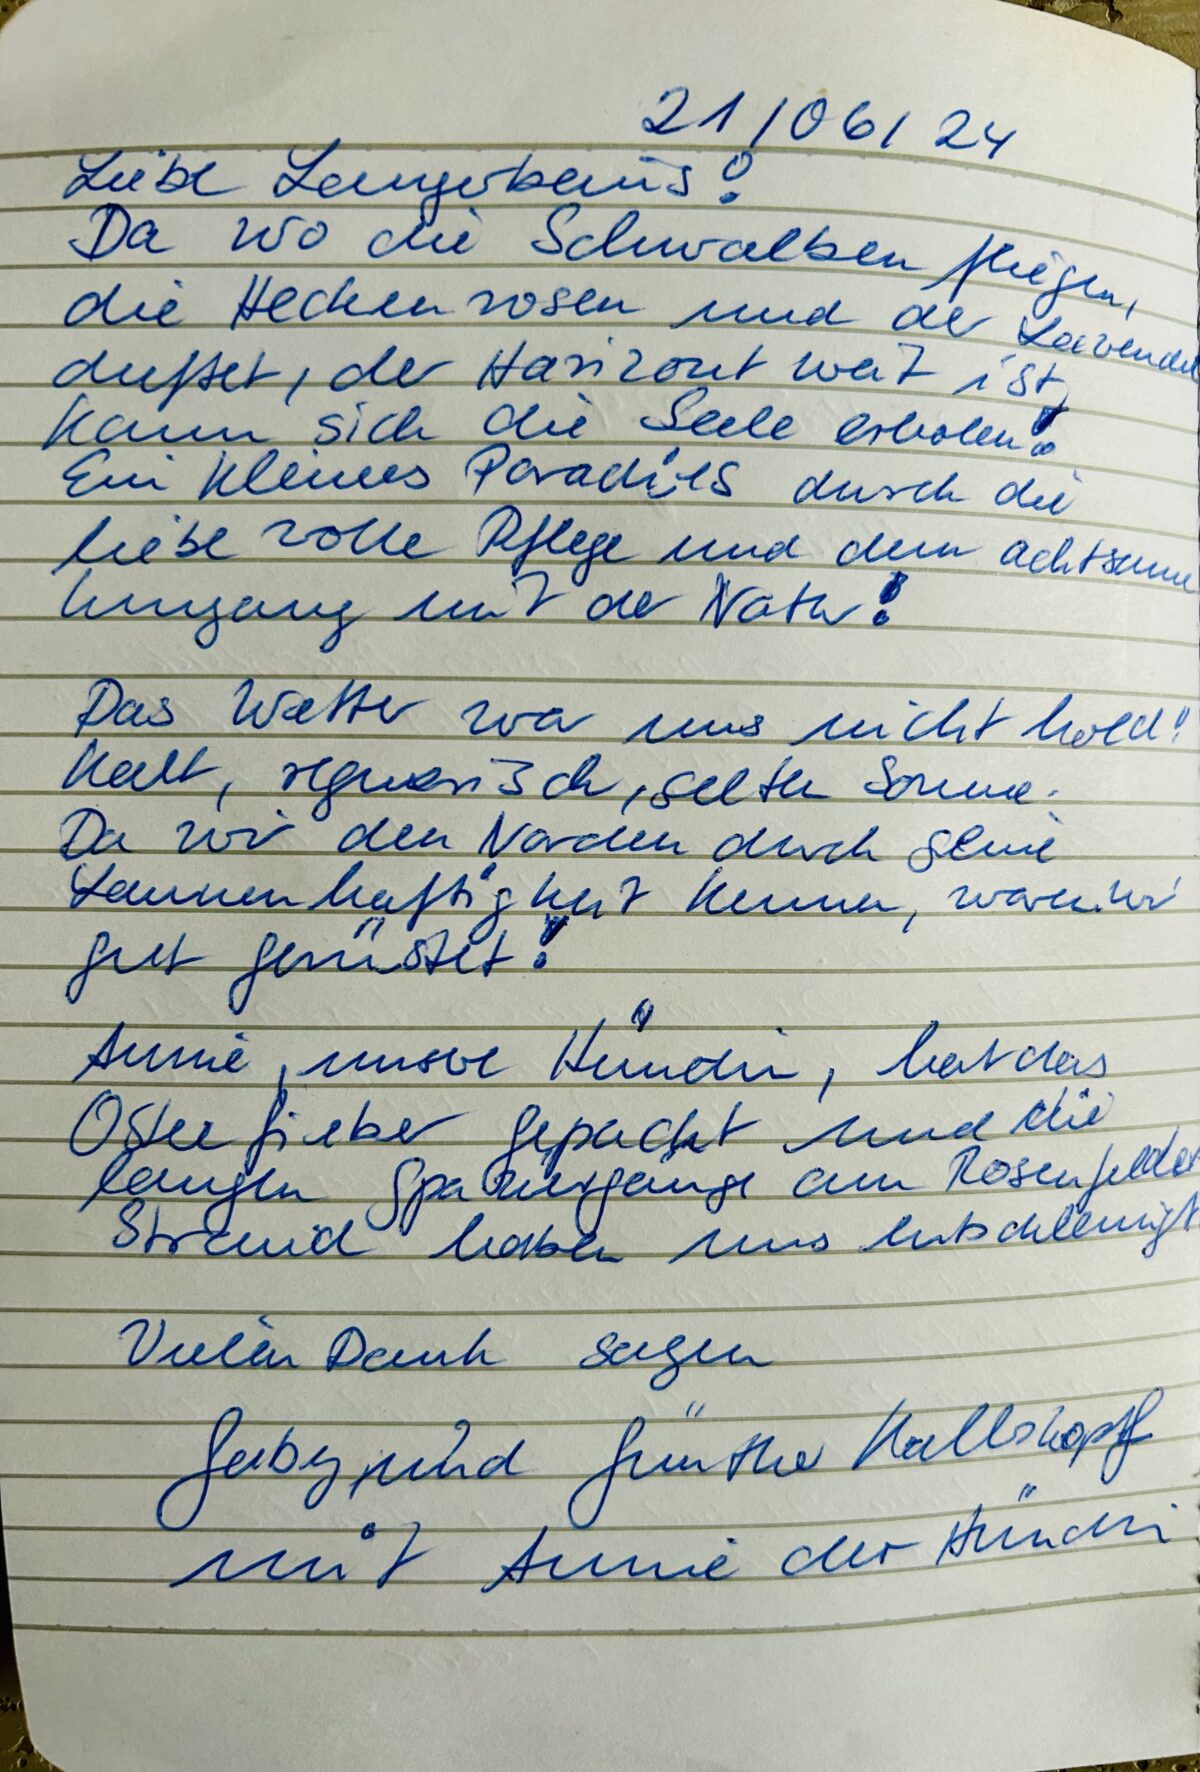 21/06/24
Liebe Langerbeins!
Da wo die Schwalben fliegen,
die Heckenrosen und der Lavendel
duftet, der Horizont weit ist,
kann sich die Seele erholen!
Ein kleines Paradies durch die
liebevolle Pflege und dem achtsamen
Umgang mit der Natur!
Das Wetter war uns nicht hold!
Kalt, regnerisch, selten Sonne.
Da wir den Norden durch seine
Launenhaftigkeit kennen, waren wir
gut gerüstet!
Annie, unsere Hündin, hat das
Ostseefieber gepackt und die
langen Spaziergänge am Rosenfelder
Strand haben uns entschleunigt
Vielen Dank sagen
Gaby und Günther Kalbskopf
mit Annie der Hündin